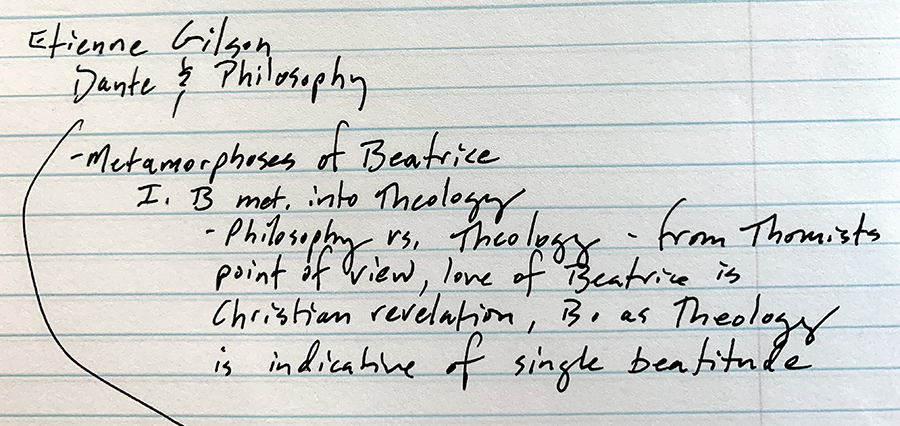 Etienne Gilson
Dante & Philosophy
- Metamorphoses of Beatrice
I. B met. into Theology
- Philosophy vs. Theology - from Thomists
point of view, love of Beatrice is
Christian revelation, B. as Theology
is indicative of single beatitude